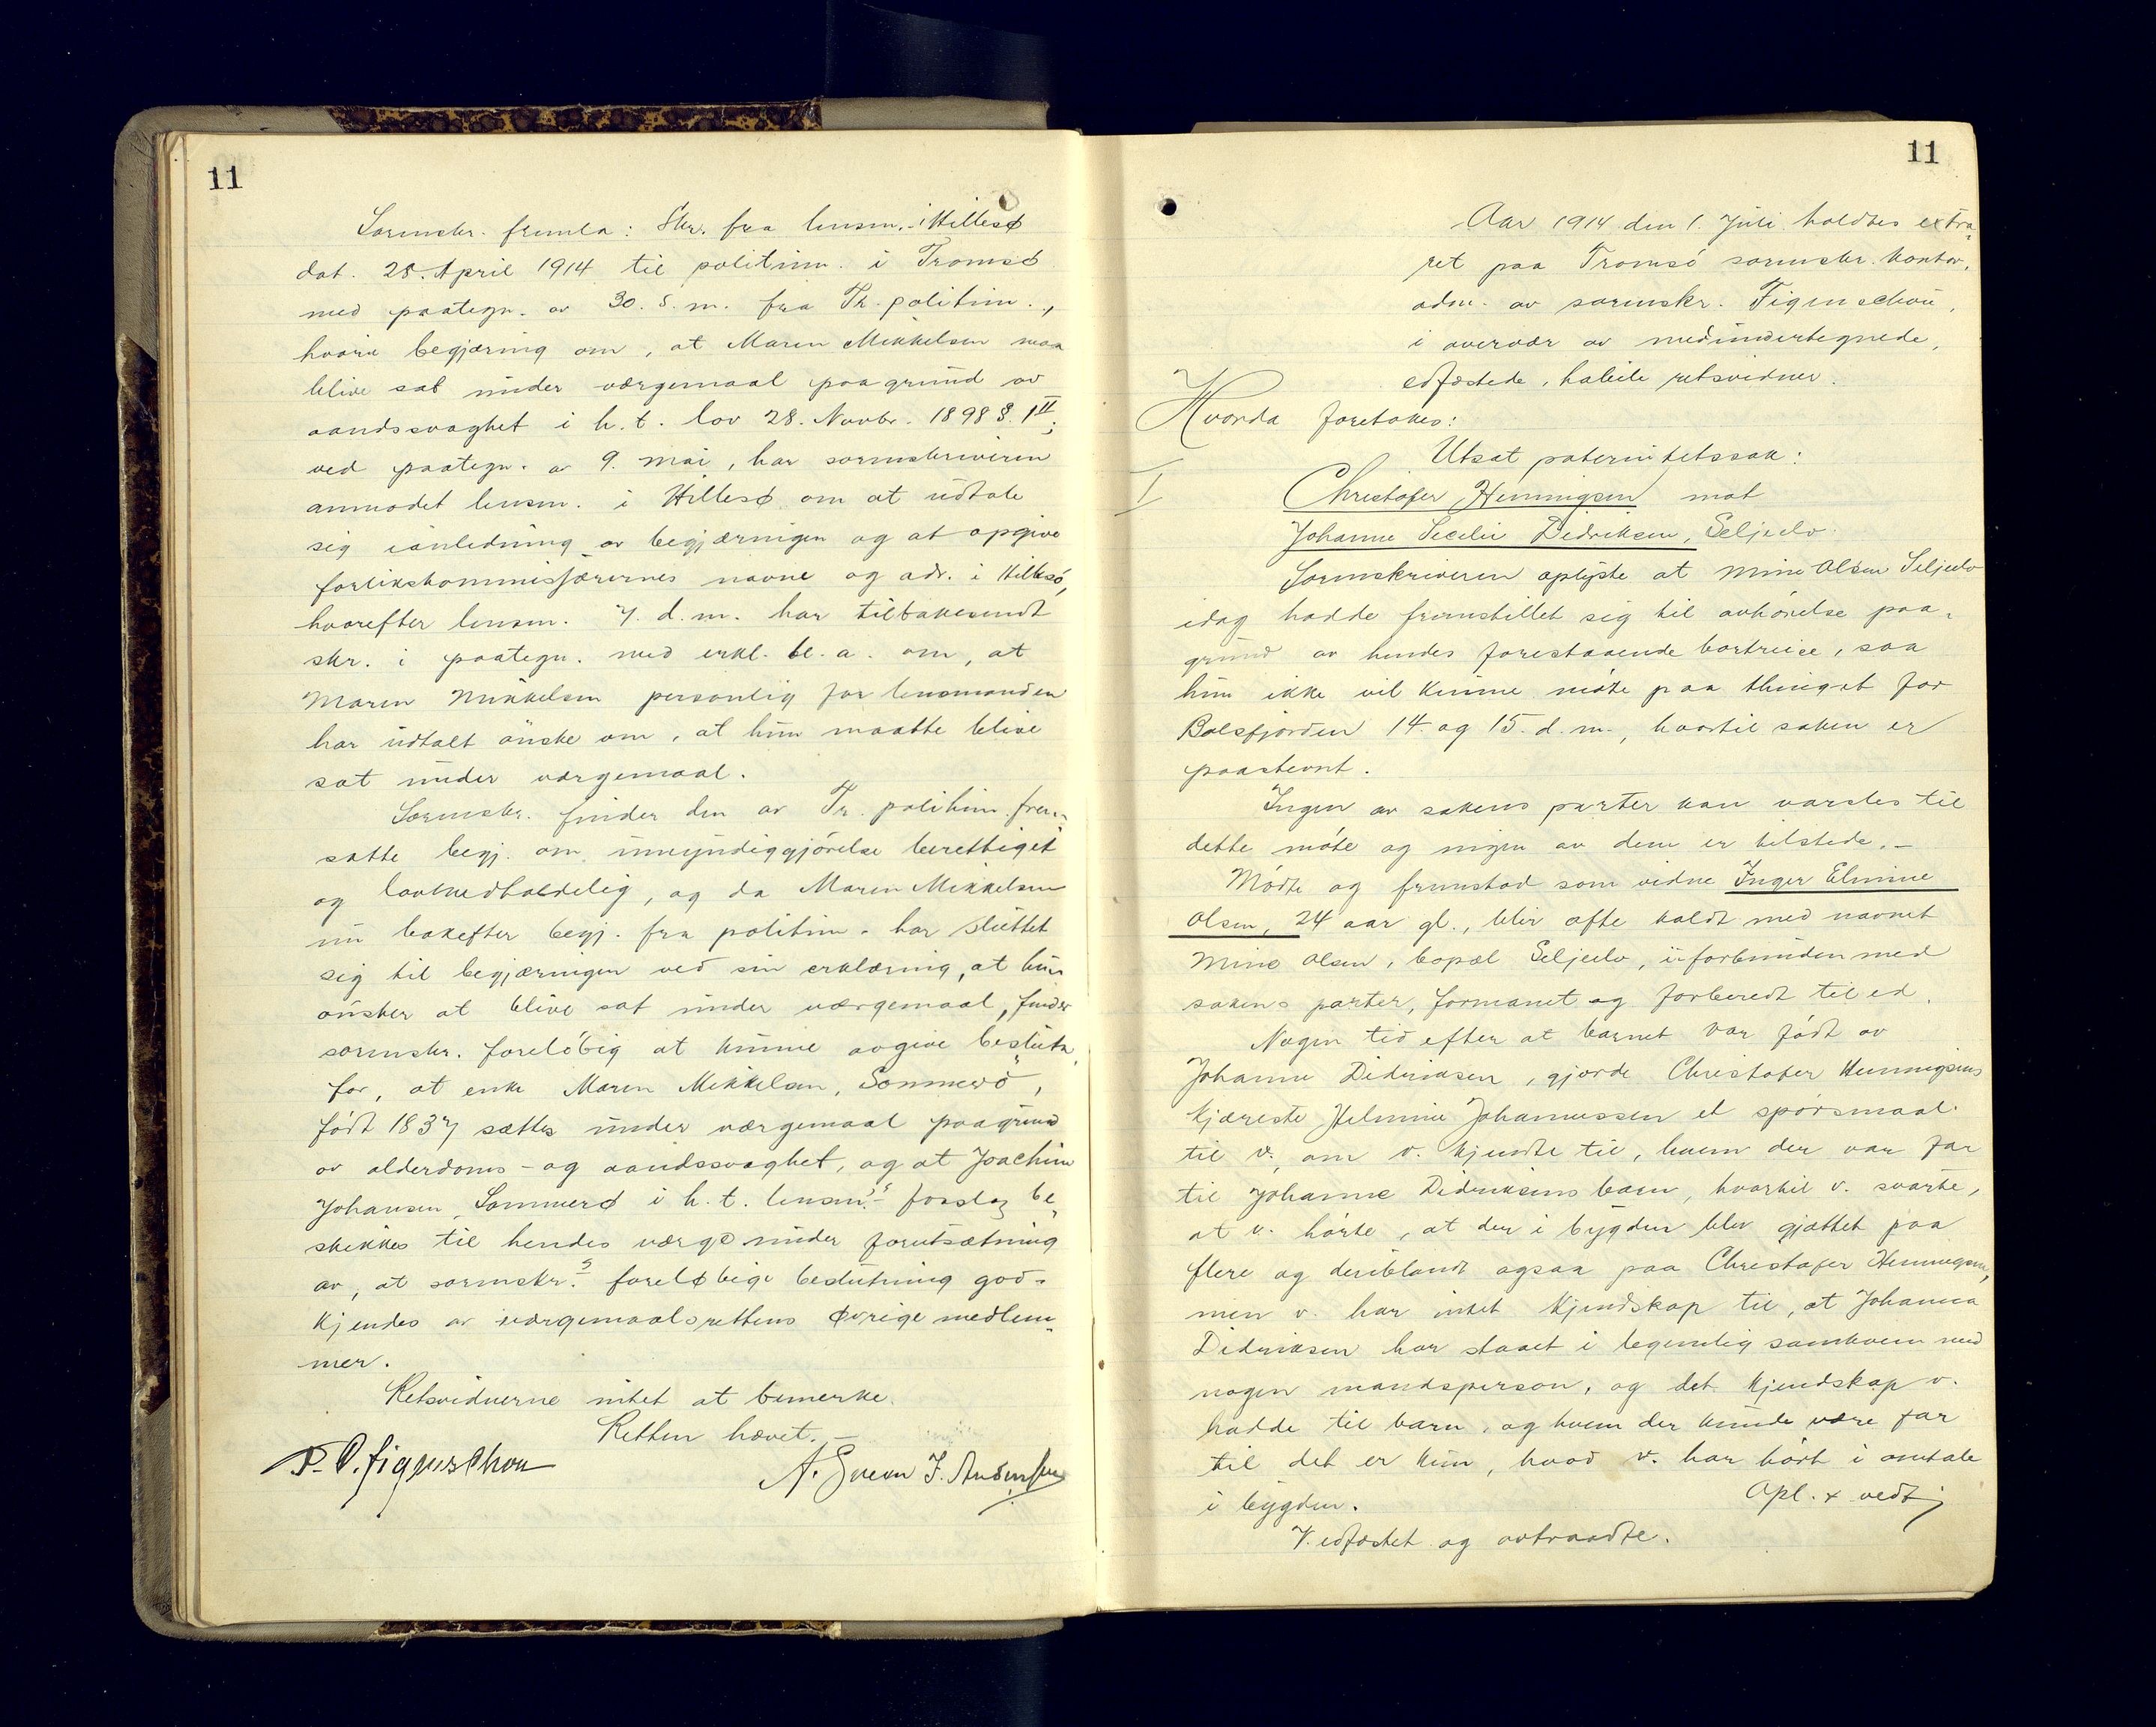 11
Sorenskr. fremla: Skr. fra lensm. i Hillesø
dat. 28. April 1914 til politim. i Tromsø
med paategn. av 30. s. m. fra Tr. politim.,
hvori begjæring om, at Maren Mikkelsen maa
blive sat under værgemaal paa grund av
aandssvaghet i h. t. lov 28. Novbr. 1898 § 1 II;
ved paategn. av 9. mai, har sorenskriveren
anmodet lensm. i Hillesø om at udtale
sig ianledning av begjæringen og at opgive
forlikskommisærernes navne og adr. i Hillesø,
hvorefter lensm. 7. d. m. har tilbakesendt
skr. i paategn. med erkl. bl. a. om, at
Maren Mikkelsen personlig for lensmanden
har udtalt ønske om, at hun maatte blive
sat under værgemaal.
Sorenskr. finder den av Tr. politim. frem-
satte begj. om umyndiggjørelse berettiget
og lovmedholdelig, og da Maren Mikkelsen
nu bakefter begj. fra politim. har sluttet
sig til begjæringen ved sin erklæring, at hun
ønsker at blive sat under værgemaal, finder
sorenskr. foreløbig at kunne avgive beslutn.
for, at enke Maren Mikkelsen, Sommerø,
født 1837 sættes under værgemaal paagrund
av alderdoms- og aandssvaghet, og at Joachim
Johansen, Sommerø i h. t. lensm.s forslag be-
skikkes til hendes værge under forutsætning
av, at sorenskr.s foreløbige beslutning god-
kjendes av værgemaalsrettens øvrige medlem-
mer.
Retsvidnerne intet at bemerke.
Retten hævet. –
P. O. Figenschou
A. Sveen J. Andersen
11
Aar 1914 den 1. Juli holdtes extra-
ret paa Tromsø sorenskr. kontor,
adm. av sorenskr. Figenschou,
i overvær av medundertegnede,
edfæstede, habile retsvidner.
Hvorda foretokes:
Utsat paternitetssak:
I
Christofer Henningsen mot
Johanne Secilie Didriksen, Seljeelv.
Sorenskriveren oplyste at Mine Olsen Seljeelv
idag hadde fremstillet sig til avhørelse paa-
grund av hendes forestaaende bortreise, saa
hun ikke vil kunne møte paa thinget for
Balsfjorden 14. og 15. d. m., hvortil saken er
paastevnt.
Ingen av sakens parter kan varsles til
dette møte og ingen av dem er tilstede. –
Mødte og fremstod som vidne Inger Elmine
Olsen, 24 aar gl., blir ofte kaldt med navnet
Mine Olsen, bopæl Seljeelv, uforbunden med
sakens parter, formanet og forberedt til ed.
Nogen tid efter at barnet var født av
Johanne Didriksen, gjorde Christofer Henningsens
kjæreste Helmine Johannessen et spørsmaal
til v., om v. kjendte til, hvem der var far
til Johanne Didriksens barn, hvortil v. svarte,
at v. hørte, at der i bygden blev gjættet paa
flere og deriblandt ogsaa paa Christofer Henningsen,
men v. har intet kjendskap til, at Johanna
Didriksen har staaet i legemlig samkvem med
nogen mandsperson, og det kjendskap v.
hadde til barn, og hvem der kunde være far
til det er kun, hvad v. har hørt i omtale
i bygden.
Opl. & vedt;
V. edfæstet og avtraadte.